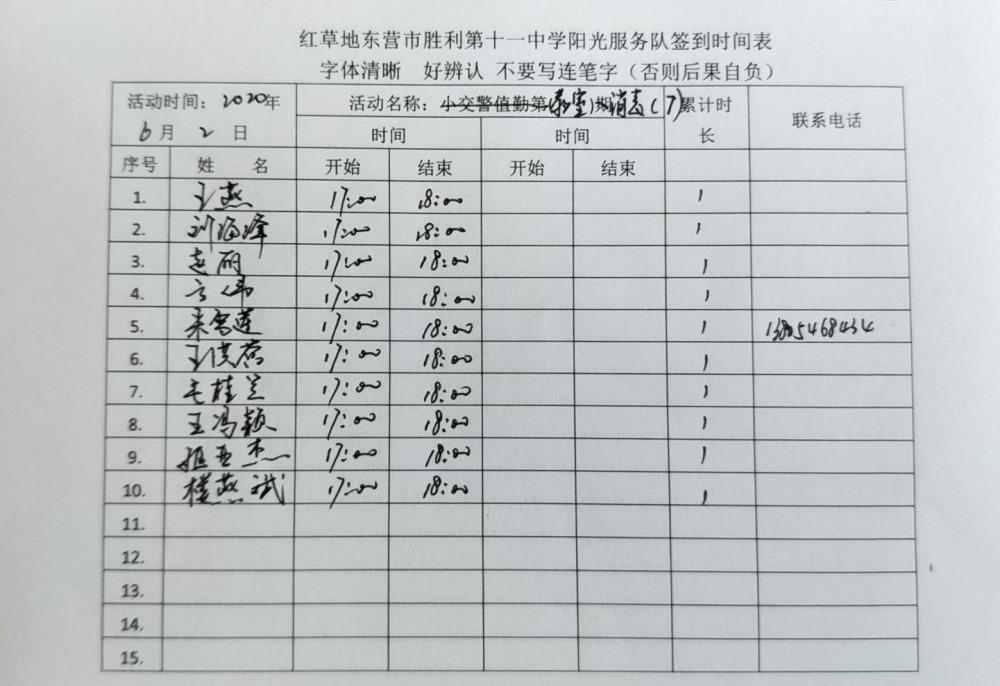 红草地东营市胜利第十一中学阳光服务队签到时间表
字体清晰 好辨认 不要写连笔字（否则后果自负）
活动时间：2020年 6月 2日
活动名称：小交警值勤第(教室)期消毒(7)
累计时长
联系电话
时间 时间
序号 姓 名 开始 结束 开始 结束
1. 王燕 17:00 18:00 1
2. 刘海峰 17:00 18:00 1
3. 赵丽 17:00 18:00 1
4. 方伟 17:00 18:00 1
5. 朱雪莲 17:00 18:00 1 13805468434
6. 王洪 17:00 18:00 1
7. 毛桂兰 17:00 18:00 1
8. 王冯颖 17:00 18:00 1
9. 姬亚杰 17:00 18:00 1
10. 楼燕斌 17:00 18:00 1
11.
12.
13.
14.
15.